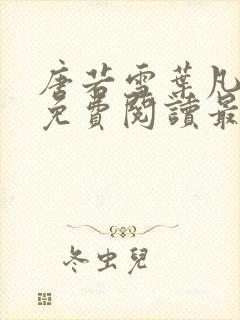 唐若雪葉凡
免費閱讀最
冬虫兒